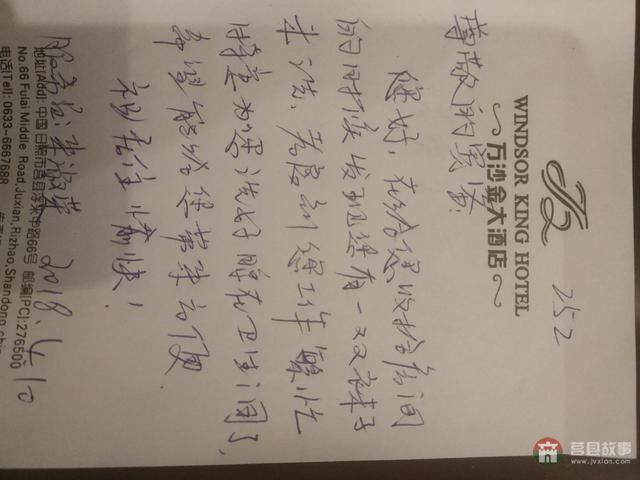 252
万沙金大酒店
WINDSOR KING HOTEL
尊敬的宾客:
您好,在给您收拾房间
的时候发现您有一双袜子
未洗,考虑到您工作繁忙
特意为您洗好晾在卫生间了,
希望能给您带来方便。
祝居住愉快!
服务员:
2018.4.10
地址(Add): 中国日照市莒县浮来中路66号 邮编(PC):276500
No.66 Fulai Middle Road,Juxian,Rizhao,Shandong,china
电话(Tel): 0633-6667688
莒县故事
www.jvxian.com